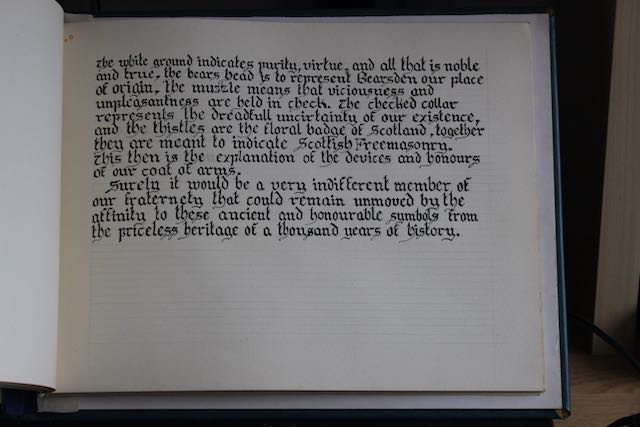 The white ground indicates purity, virtue, and all that is noble
and true, the bears head is to represent Bearsden our place
of origin, the muzzle means that viciousness and
unpleasantness are held in check. The checked collar
represents the dreadfull uncirtainty of our existence,
and the thistles are the floral badge of Scotland, together
they are meant to indicate Scottish Freemasonry.
This then is the explanation of the devices and honours
of our coat of arms.
Surely it would be a very indifferent member, of
our fraternety that could remain unmoved by the
affinity to these ancient and honourable symbols from
the priceless heritage of a thousand years of history.